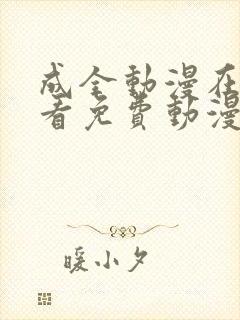 成全動漫在
看免費動漫
暖小夕